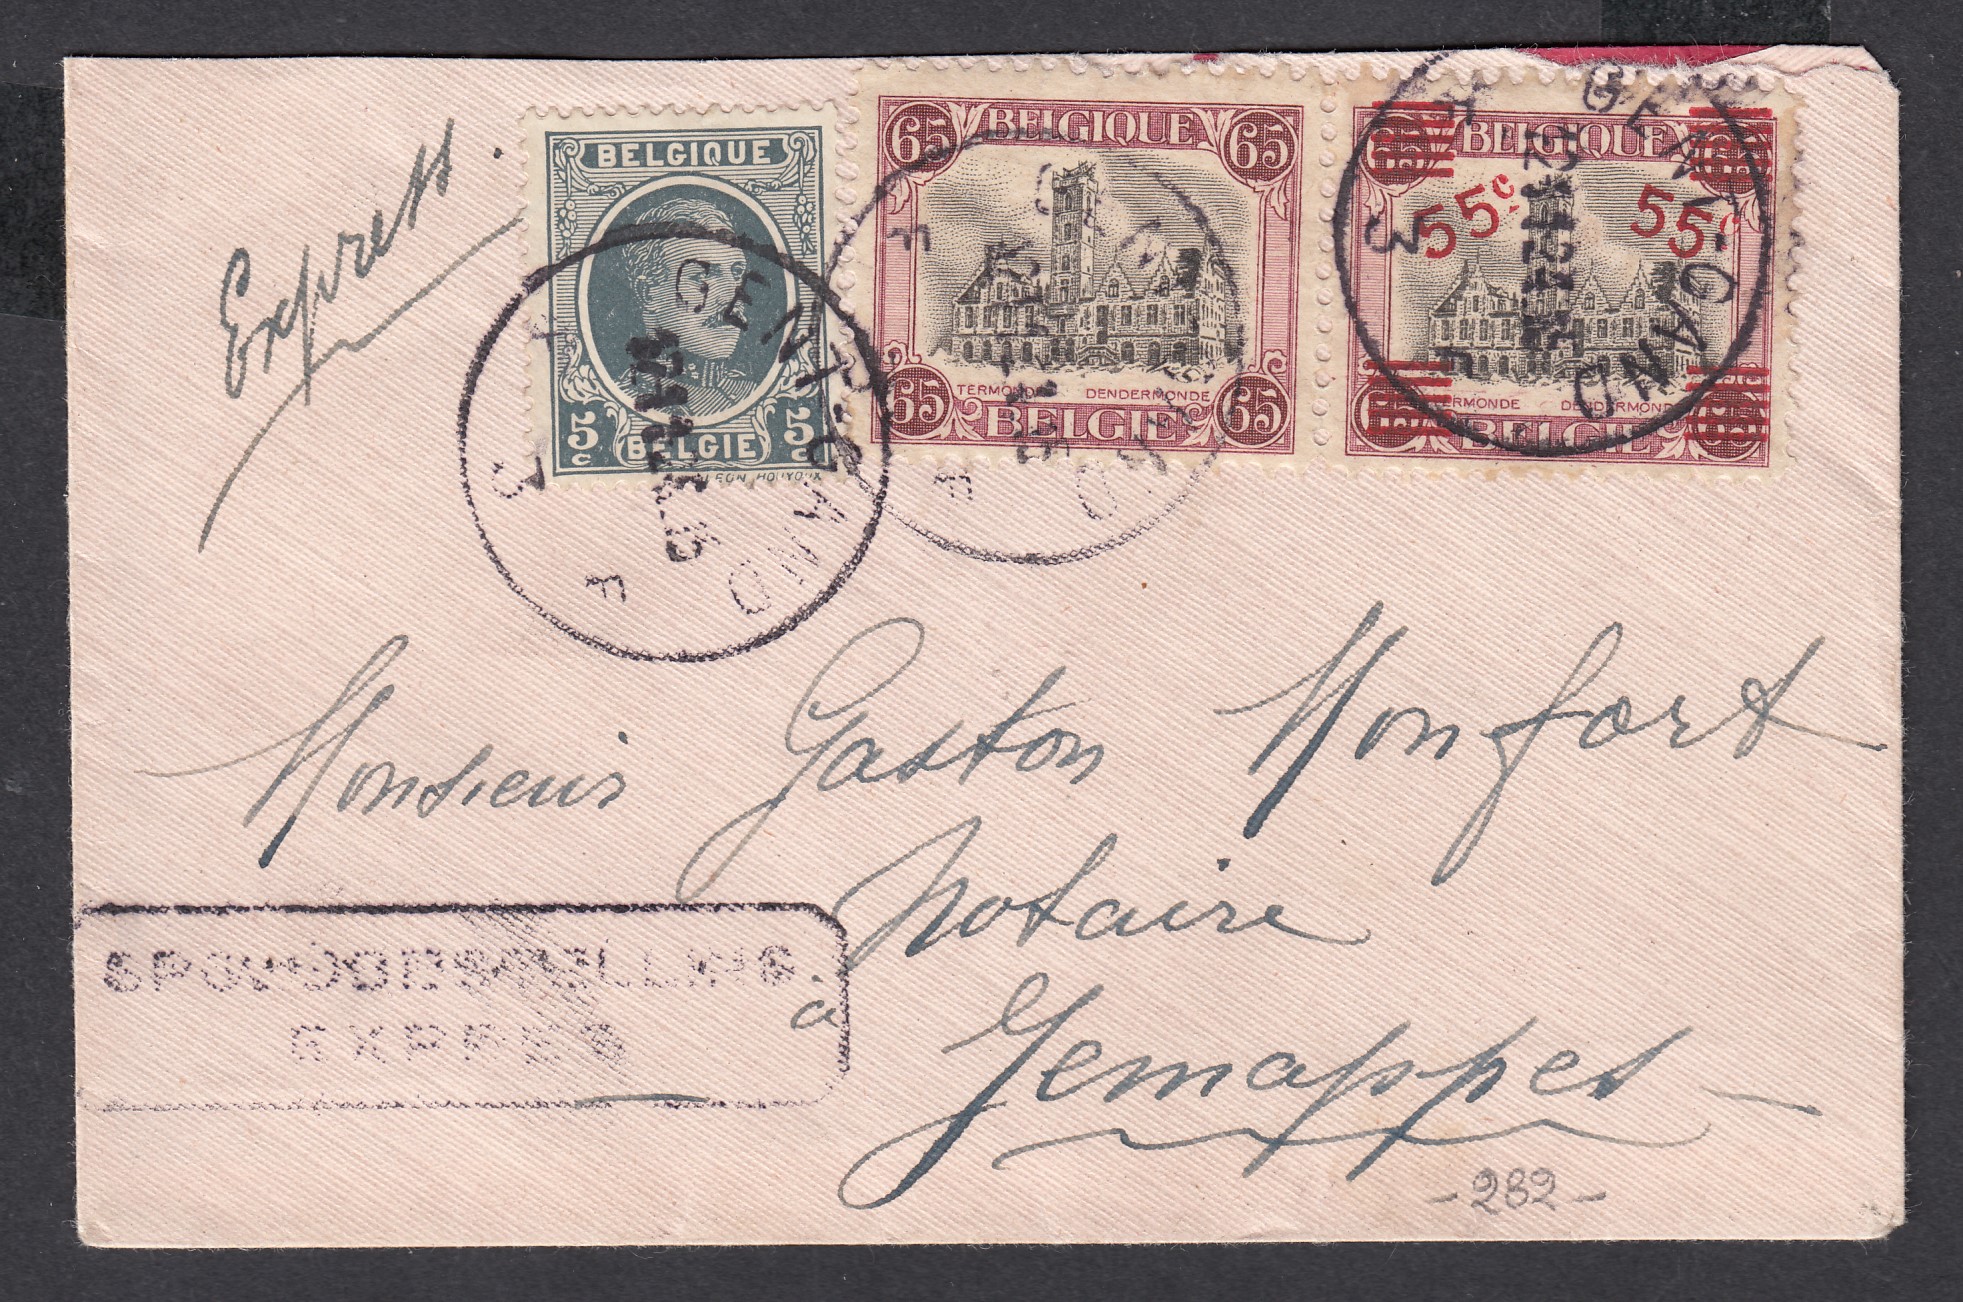 Express.
BELGIQUE
5c 5c
BELGIE
LEON HOUYOUX
65 BELGIQUE 65
TERMONDE DENDERMONDE
65 BELGIE 65
BELGIQUE
55c 55c
TERMONDE DENDERMONDE
BELGIE
GENT
F
3
GENT
F
F
GENT-GAND
F
3
Monsieur Gaston Monfort
Notaire
à
Jemappes
SPOEDBESTELLING
EXPRES
-282-